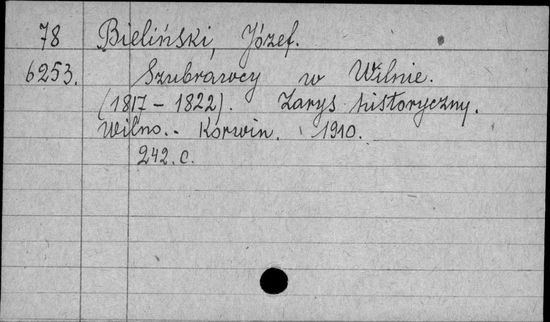 78 Bieliński, Józef.
6253. Szubrawcy w Wilnie.
(1817 – 1822). Zarys historyczny.
Wilno. - Korwin. 1910.
242. c.